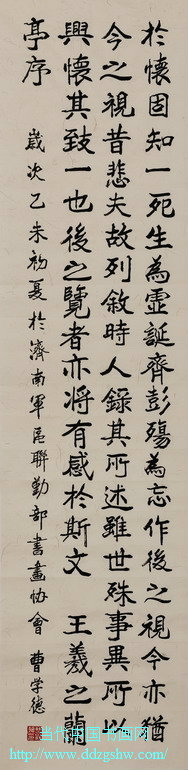 於懷固知一死生為虛誕齊彭殤為忘作後之視今亦猶
今之視昔悲夫故列敘時人錄其所述雖世殊事異所以
興懷其致一也後之覽者亦将有感於斯文 王羲之蘭
亭序 歲次乙未初夏於濟南軍区聯勤部書畫协會 曹学德
当代中国书画网
http://www.ddzgshw.com/